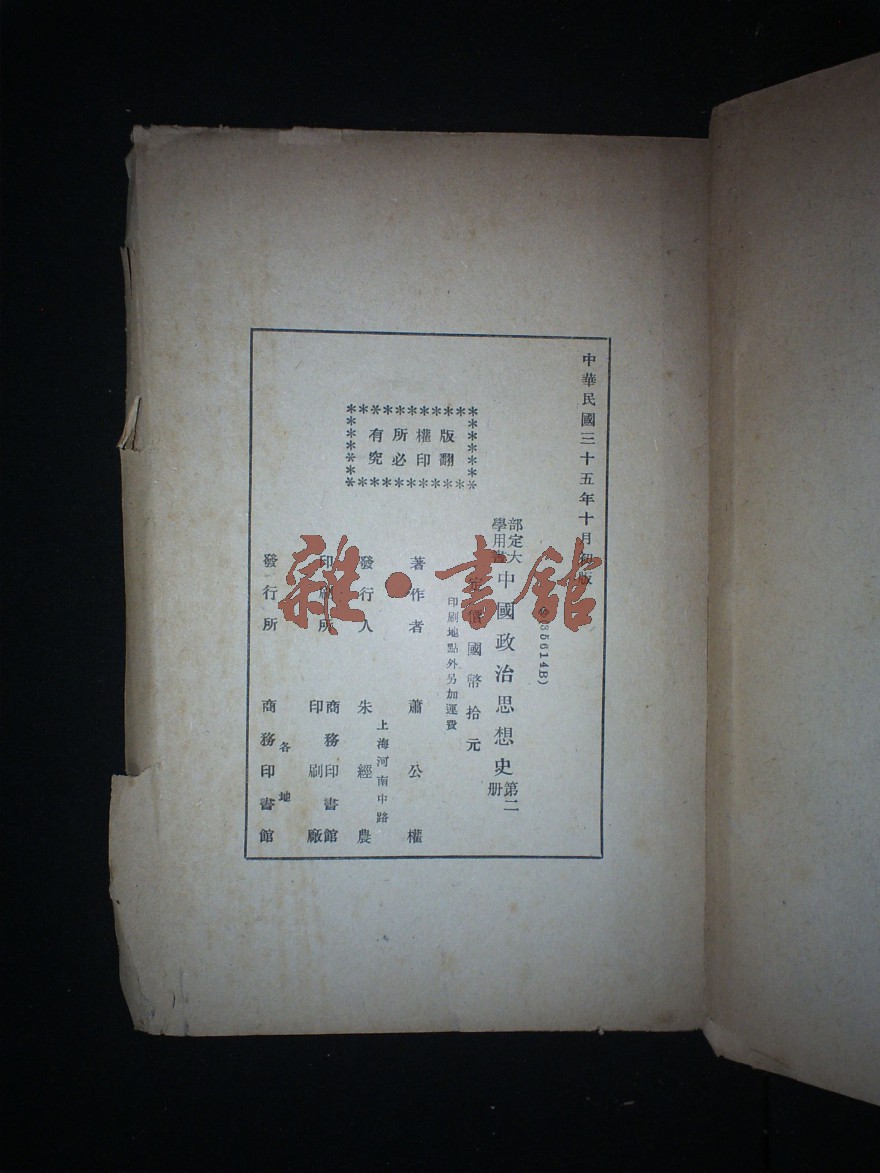 中華民國三十五年十月初版
35614B)
部定大
學用書
中國政治思想史
第二
册
定價國幣拾元
印刷地點外另加運費
版權所有
翻印必究
著作者 蕭公權
上海河南中路
發行人 朱經農
印刷所 商務印書館
印刷廠
各地
發行所 商務印書館
雜·書館